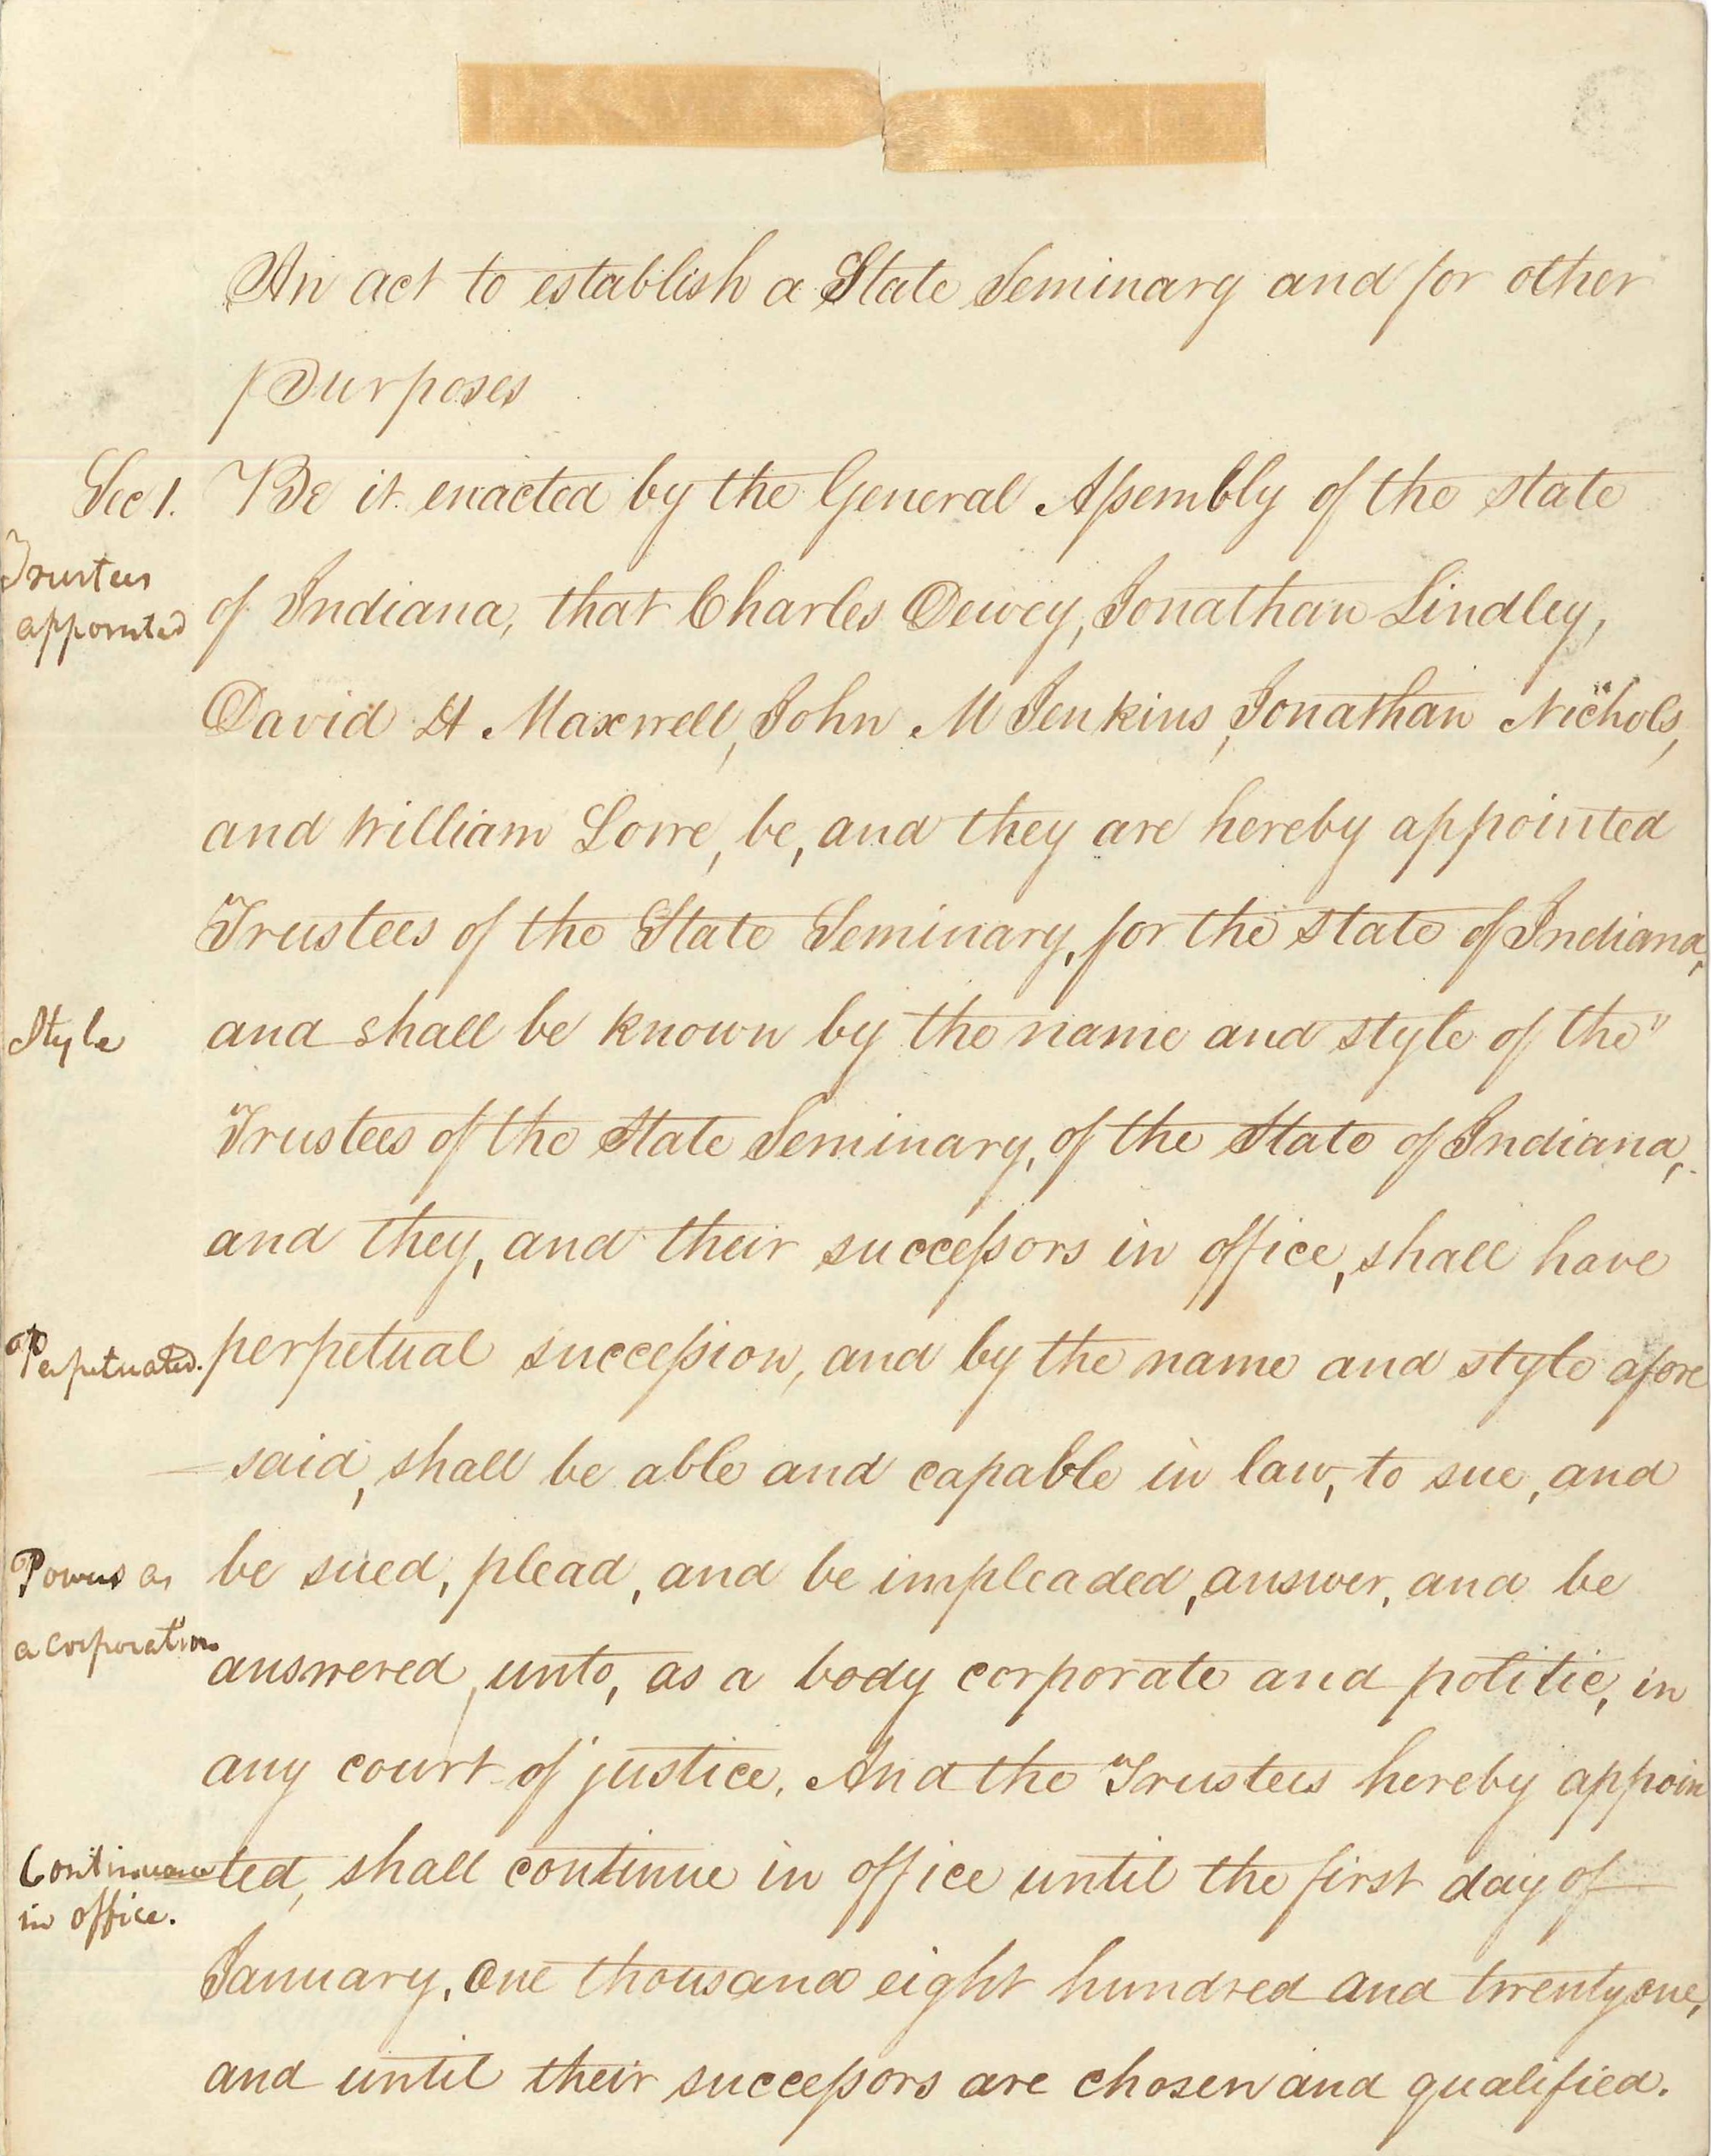 An act to establish a State Seminary and for other
Purposes
Sec 1. Be it enacted by the General Aſsembly of the state
Trustees
appointed
of Indiana, that Charles Dewey, Jonathan Lindley,
David H Maxwell, John M Jenkins, Jonathan Nichols,
and William Lowe, be, and they are hereby appointed
Trustees of the State Seminary, for the state of Indiana,
Style
and shall be known by the name and style of the "
Trustees of the State Seminary, of the State of Indiana,
and they, and their succeſsors in office, shall have
Perpetuated.
perpetual succeſsion, and by the name and style afore
said, shall be able and capable in law, to sue, and
Powers as
a corporation
be sued, plead, and be impleaded, answer, and be
answered, unto, as a body corporate and politic, in
any court of justice. And the Trustees hereby appoin
Continuance
in office.
ted, shall continue in office until the first day of
January, One thousand eight hundred and twenty one,
and until their succeſsors are chosen and qualified.